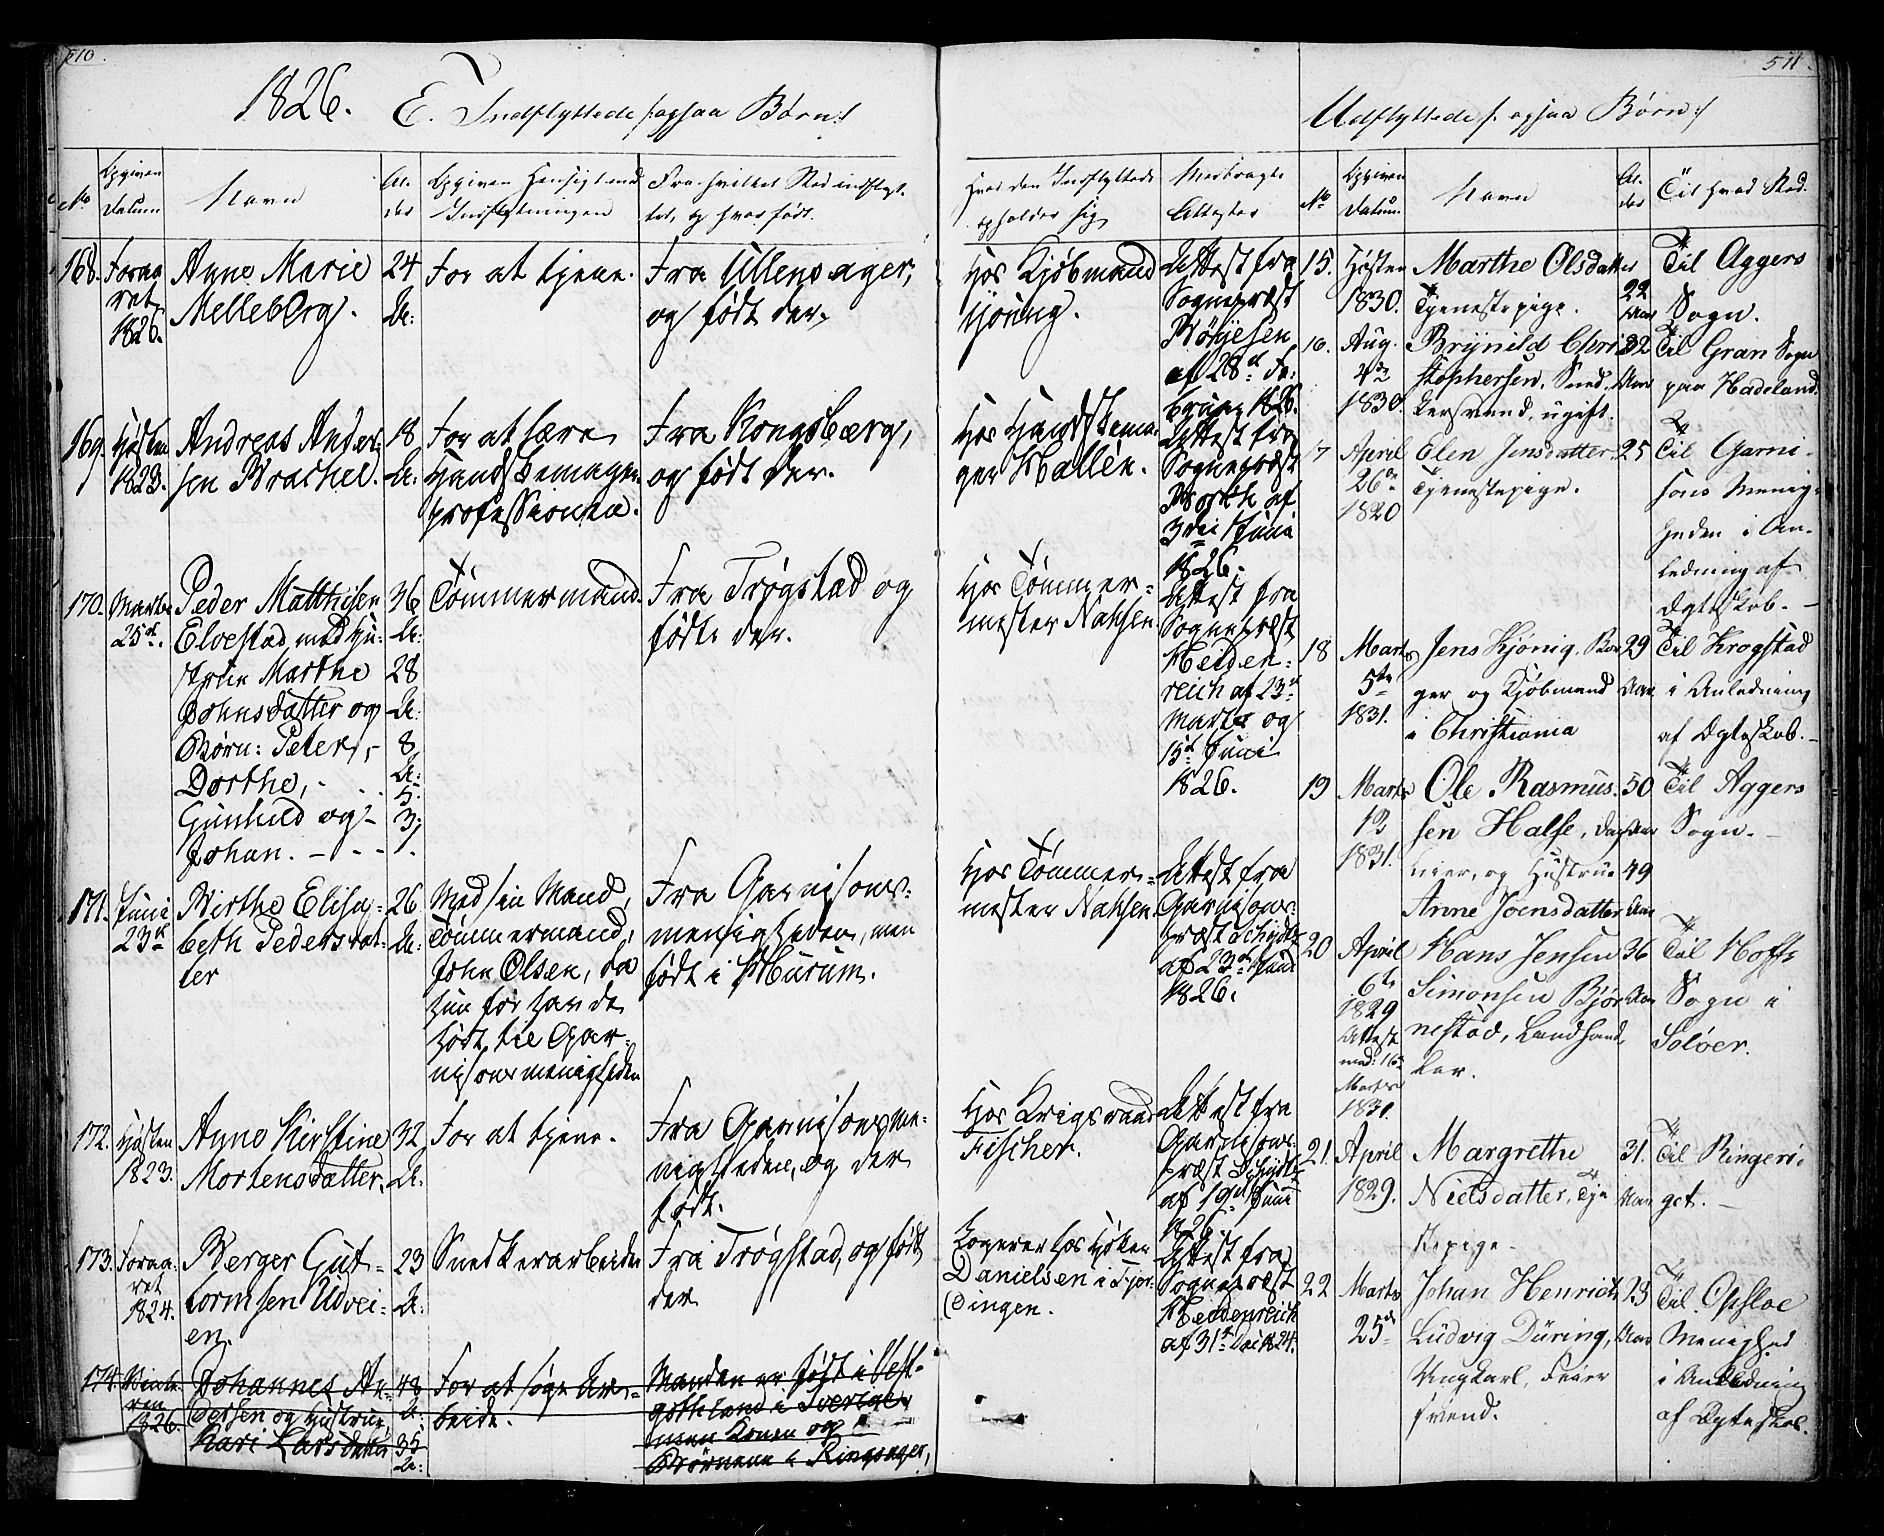 510.
1826. E. Indflyttede /: ogsaa Børn :/
No
Opgiven Datum
Navn
Alder
Opgiven Hensigt med Indflytningen
Fra hvilket Sted indflyttet, og hvor født.
Hvor den Indflyttede opholder sig
Medbragte Attester
168.
Foraa
ret
1826.
Anne Marie
Melleberg.
24
A:
For at tjene.
Fra Ullensager,
og født der.
Hos Kjøbmand
Attest fra
Sognepræst
af 28d Fe:
bruar 1826.
169.
Høsten
1823.
Andreas Ander
sen Brachel.
18
A:
For at lære
Handskemager
professionen.
Fra Kongsberg,
og født der.
Hos Handskema
ger Hallén.
Attest fra
Sognepræst
af
3die Juni
1826.
170.
Marts
25d.
Peder Matthisen
Elvestad med Hu:
strue Marthe
Johnsdatter og
Børn: Peter, -
Dorthe, -
Gunhild og -
Johan. - - -
36
A:
28
A:
8
A:
5.
3.
1.
Tømmermand.
Fra Trøgstad og
født der.
Hos Tømmer=
mester Nahsen.
Attest fra
Sognepræst
Heiden=
reich af 23d
Marts og
15d Juni
1826.
171.
Juni
23d
Birthe Elisa=
beth Pedersdat=
ter
26
A:
Med sin Mand,
Tømmermand,
John Olsen, da
hun før havde
hørt til Gar=
nisonsmenigheden
Fra Garnisons=
menigheden, men
født i Hurum.
Hos Tømmer=
mester Nahsen.
Attest fra
Garnisons=
præst Schydtz
af 23d Juni
1826.
172.
Høsten
1823.
Anne Kirstine
Mortensdatter.
32
A:
For at tjene.
Fra Garnisonsme=
nigheden, og der
født.
Hos Krigsraad
Fischer.
Attest fra
Garnisons=
præst Schydtz
af 19d Juni
1826.
173.
Foraa
ret
1824.
Berger Gut=
tormsen Udvei=
en.
23
A:
Snedkerarbeide
Fra Trøgstad, og født
der
Logerer hos Høker
Danielsen i Fjer=
dingen.
Attest fra
Sognepræst
Heidenreich
af 31d Dec 1824.
174.
Vinte
ren
1826.
Johannes An=
dersen og Hustrue
Kari Larsdatter
48
A:
35
A:
For at søge Ar=
beide.
Manden er født i Vest-
gothland i Sverige
men Konen og
Børnene i Ringsager,
511.
Udflyttede /: ogsaa Børn :/
No
Opgiven Datum.
Navn
Alder
Til hvad Sted.
15.
Høsten
1830.
Marthe Olsdatter
Tjenestepige.
22
Aar
Til Aggers
Sogn.
16.
Aug.
1830.
Brynild Chri
stophersen, Sned.
kersvend, ugift.
32
Aar
Til Gran Sogn
paa Hadeland.
17
April
26de
1820
Elen Jensdatter.
Tjenestepige.
25
Til Garni-
sons Menig-
heden i An-
ledning af
Ægteskab. -
18
Marts
5te
1831.
Jens Kjönig, Bor
ger og Kjøbmand
i Christiania
29
Aar
Til Krogstad
i Anledning
af Ægteskab. -
19
Marts
12
1831.
Ole Rasmus.
sen Halse,
og Hustrue
Anne Joensdatter
50
Aar
49
Aar
Til Aggers
Sogn. -
20
April
6te
1829
Attest
med: 16de
Marts
1831.
Hans Jensen
Simonsen Bjør
nestad, Landhand
ler.
36
Aar
Til Hoffs
Sogn i
Soløer.
21.
April
1829.
Margrethe
Nielsdatter, Tje
stepige.
31.
Aar
Til Ringeri-
get. -
22
Marts
25de
Johan Henrich
Ludvig Düring,
Ungkarl, Feier
svend.
23
Aar
Til Opsloe
Menighed
i Anledning
af Ægteskab.